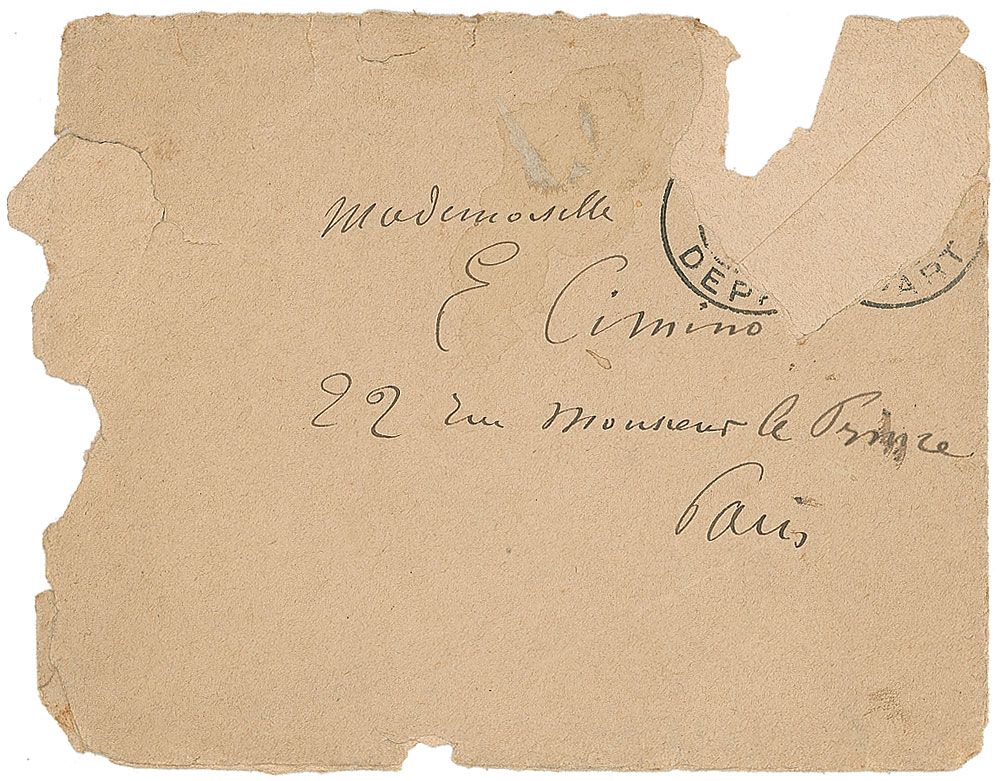 Mademoiselle
E Cimino
22 rue Monsieur le Prince
Paris
DEP
PART